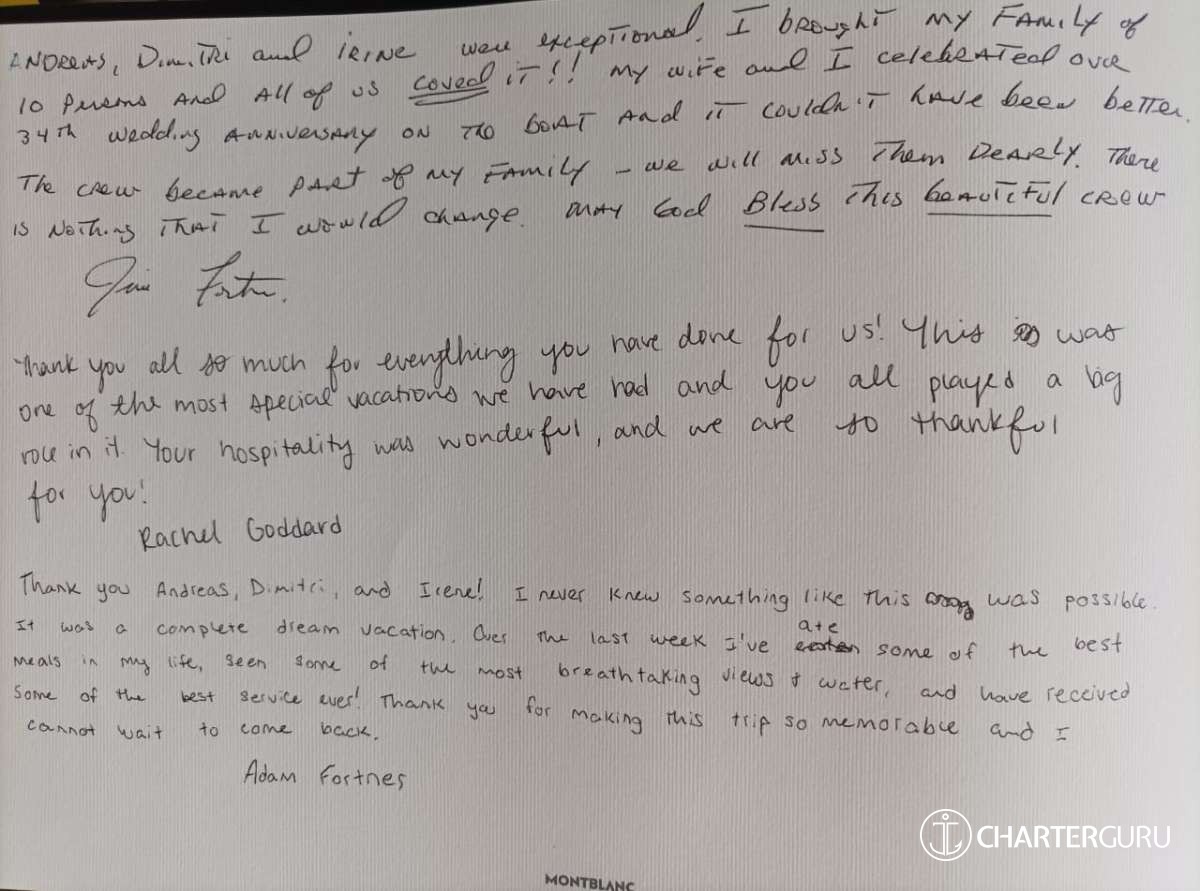 ANDREAS, DimiTRi and iRiNE were exceptional. I brought my Family of
10 Persons and All of us Loved iT!! My wife and I celebrated our
34th Wedding Anniversary on the boat and it couldn't have been better.
The crew became part of my Family - we will miss Them Dearly. There
is Nothing That I would change. May God Bless This beautiful crew
Thank you all so much for everything you have done for us! This was
one of the most special vacations we have had and you all played a big
role in it. Your hospitality was wonderful, and we are so thankful
for you!
Rachel Goddard
Thank you Andreas, Dimitri, and Irene! I never knew something like this was possible.
It was a complete dream vacation. Over the last week I've ate some of the best
meals in my life, seen some of the most breathtaking views & water, and have received
some of the best service ever! Thank you for making this trip so memorable and I
cannot wait to come back.
Adam Fortner
CHARTERGURU
MONTBLANC